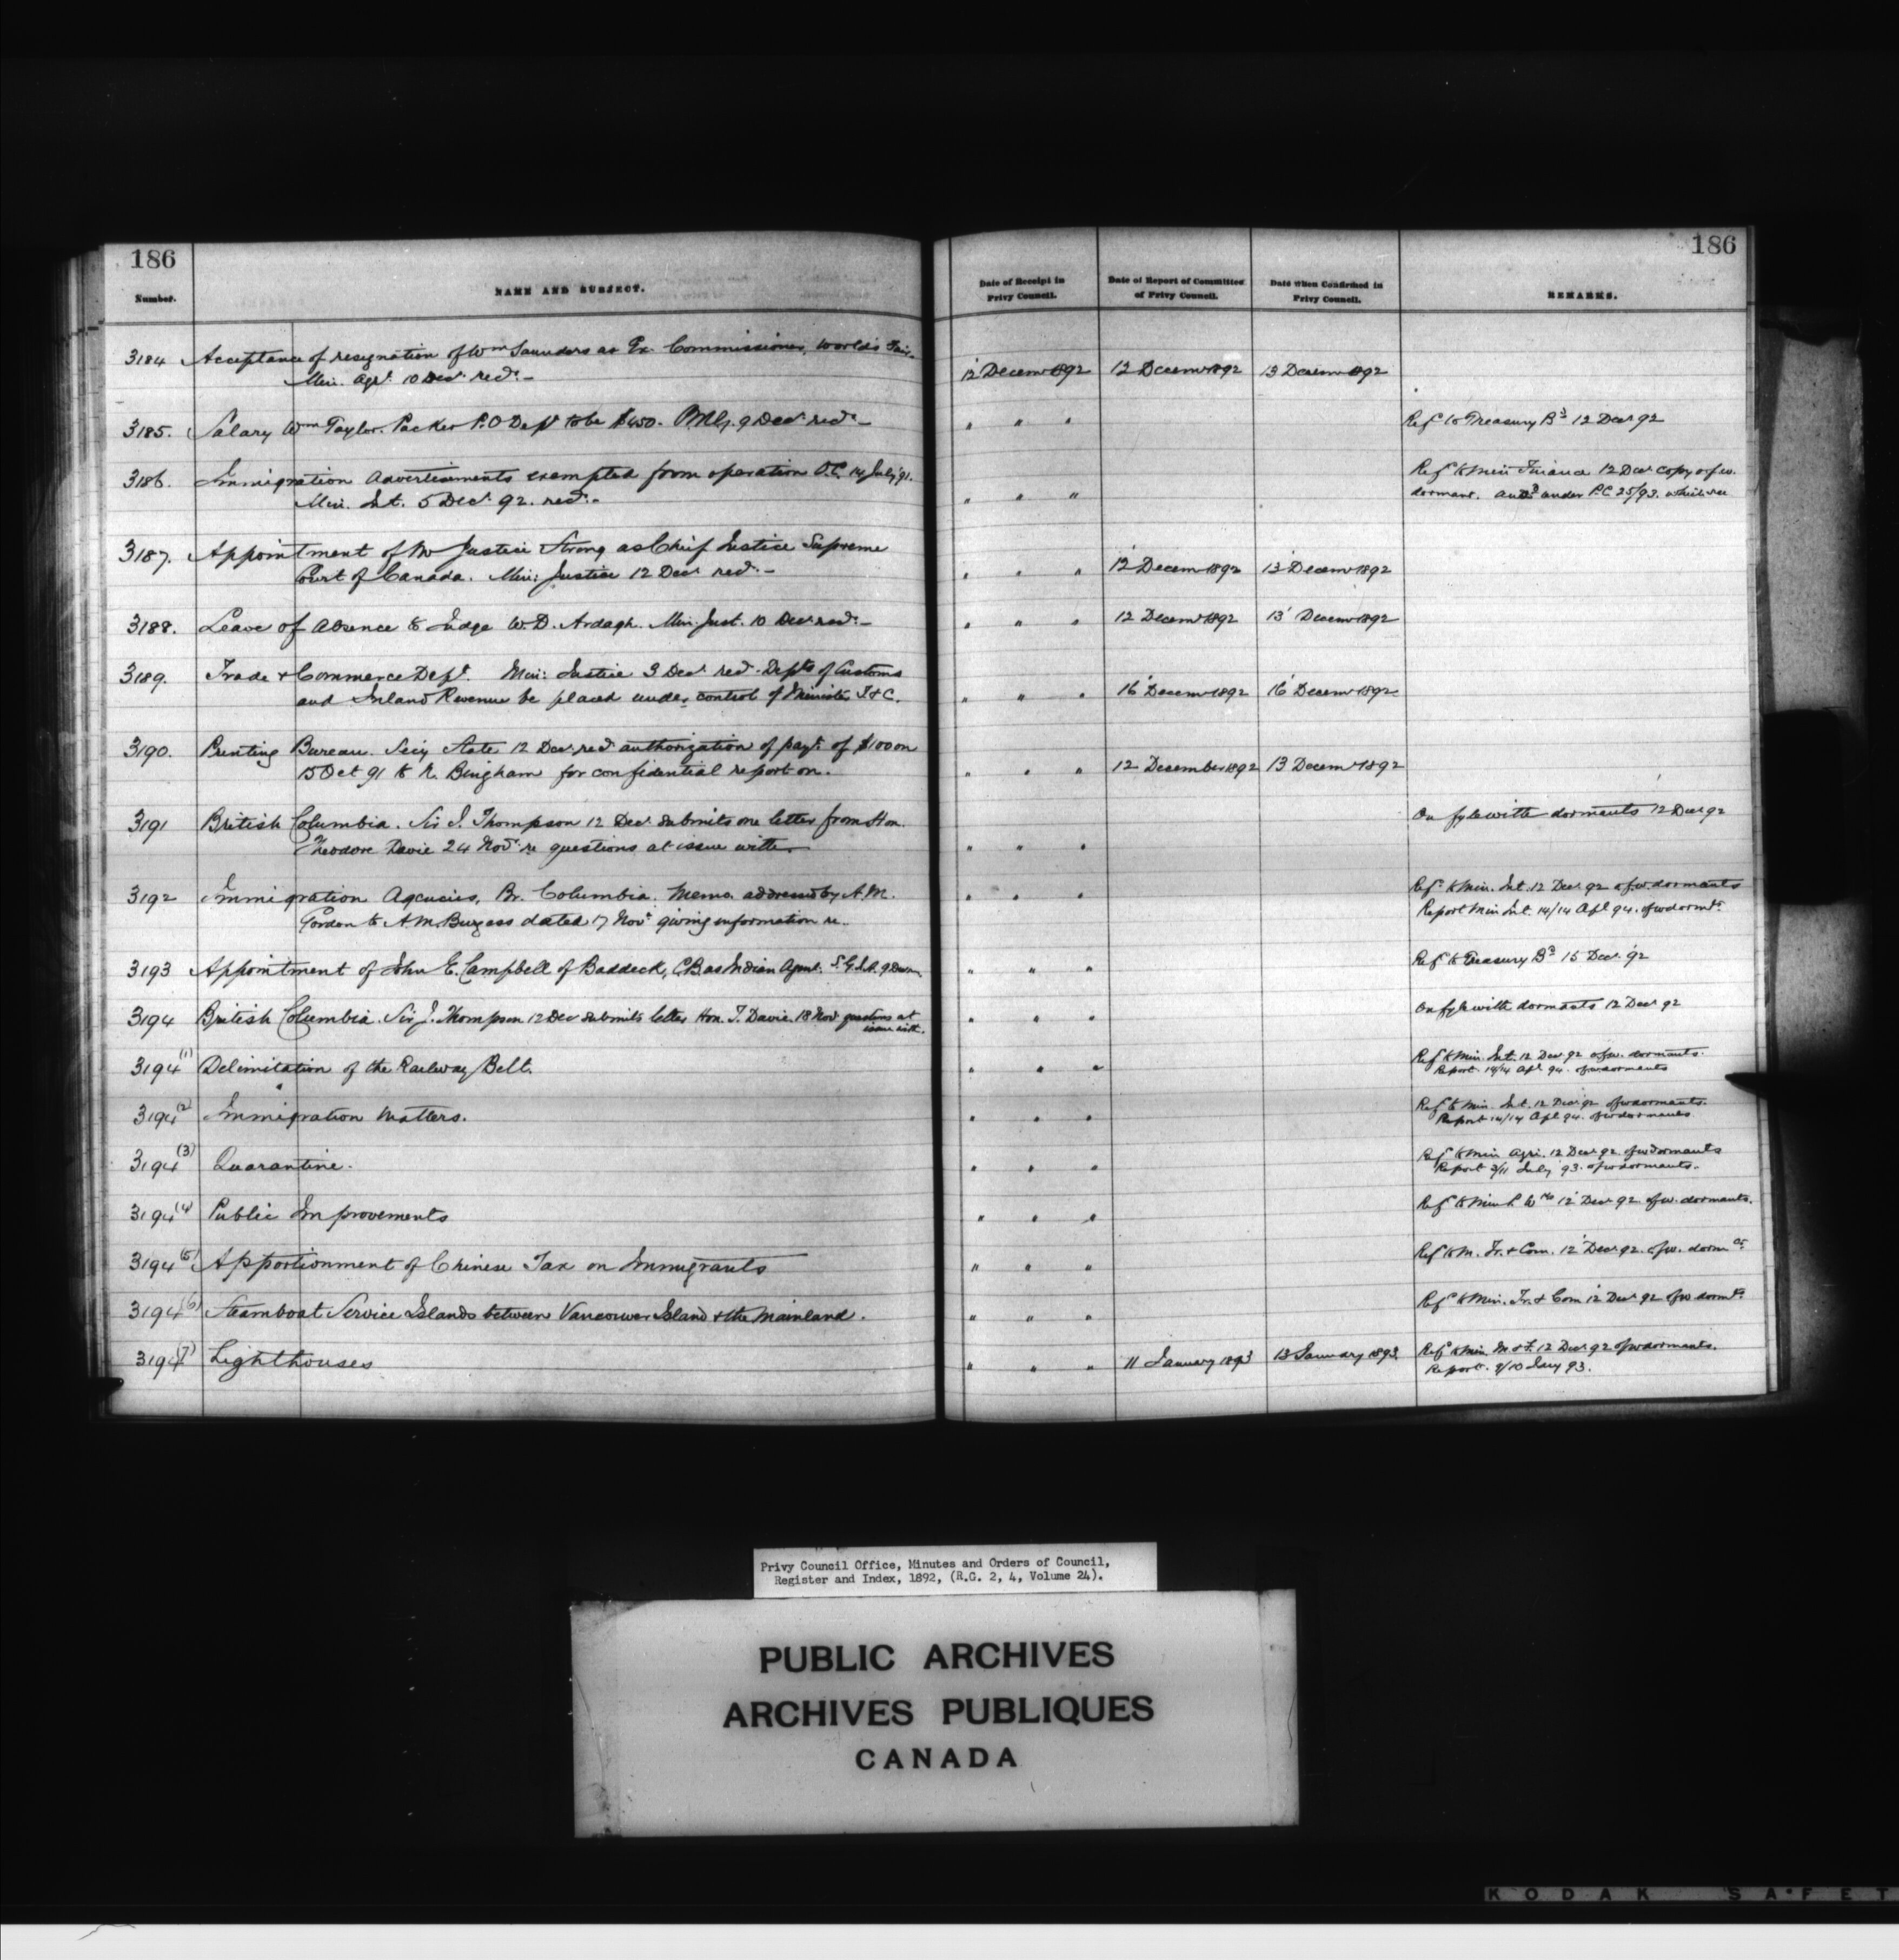 186
186
Number.
NAME AND SUBJECT.
Date of Receipt in
Privy Council.
Date of Report of Committee
of Privy Council.
Date when Confirmed in
Privy Council.
REMARKS.
3184 Acceptance of resignation of Wm Saunders as Ex. Commissioner, World's Fair.
Min. Agr. 10 Decr recd. – 12 Decemr 1892 12 Decemr 1892 13 Decemr 1892
3185. Salary Wm Taylor. Packer P.O Dept to be $450. P.M.G. 9 Decr recd. – " " " Refd to Treasury Bd 12 Decr 92
3186. Immigration Advertisements exempted from operation O.C. 14 July '91. Refd to Min Finance 12 Decr copy o.f.w.
Min. Int. 5 Decr 92. recd. – " " " dormant. and under P.C. 25/93. which see
3187. Appointment of Mr Justice Strong as Chief Justice Supreme
Court of Canada. Min: Justice 12 Decr recd. – " " " 12 Decemr 1892 13 Decemr 1892
3188. Leave of Absence to Judge W.D. Ardagh. Min. Just. 10 Decr recd. – " " " 12 Decemr 1892 13 Decemr 1892
3189. Trade & Commerce Dept. Min: Justice 3 Decr recd. Depts of Customs
and Inland Revenue be placed under control of Minister T & C. " " " 16 Decemr 1892 16 Decemr 1892
3190. Printing Bureau. Secy State 12 Decr recd authorization of payt. of $100 on
15 Oct 91 to R. Bingham for confidential report on. " " " 12 December 1892 13 Decemr 1892
3191 British Columbia. Sir J. Thompson 12 Decr submits one letter from Hon. On fyle with dormants 12 Decr 92
Theodore Davie 24 Novr re questions at issue with. " " "
3192 Immigration Agencies, Br. Columbia. Memo. addressed by A.M. " " " Refd to Min. Int. 12 Decr 92 ofw dormants
Gordon to A.M. Burgess dated 17 Novr giving information re. Report Min Int. 14/14 Apl 94. ofw dormts.
3193 Appointment of John E. Campbell of Baddeck, C.B. as Indian Agent. S.G.I.A. 9 Decr " " " Refd to Treasury Bd 15 Decr '92
3194 British Columbia. Sir J. Thompson 12 Decr submits letter Hon. T. Davie. 18 Novr questions at " " " On fyle with dormants 12 Decr 92
issue with.
3194 (1) Delimitation of the Railway Belt. " " " Refd to Min. Int. 12 Decr 92 ofw. dormants.
Report. 14/14 Apl 94. ofw dormants
3194 (2) Immigration Matters. " " " Refd to Min. Int. 12 Decr 92 ofw dormants.
Report 14/14 Apl 94. ofw dormants
3194 (3) Quarantine. " " " Refd to Min Agri. 12 Decr 92. ofw dormants
Report 3/11 July '93. ofw dormants.
3194 (4) Public Improvements " " " Refd to Min P. Wks 12 Decr 92. ofw. dormants.
3194 (5) Apportionment of Chinese Tax on Immigrants " " " Refd to M. Tr. & Com. 12 Decr 92. ofw. dormts.
3194 (6) Steamboat Service Islands between Vancouver Island & the Mainland. " " " Refd to Min. Tr. & Com 12 Decr 92 ofw dormts.
3194 (7) Lighthouses " " " 11 January 1893 13 January 1893. Refd to Min. M & F. 12 Decr 92 ofw dormants.
Report. 9/10 Jany 93.
Privy Council Office, Minutes and Orders of Council,
Register and Index, 1892, (R.G. 2, 4, Volume 24).
PUBLIC ARCHIVES
ARCHIVES PUBLIQUES
CANADA
KODAK SAFET